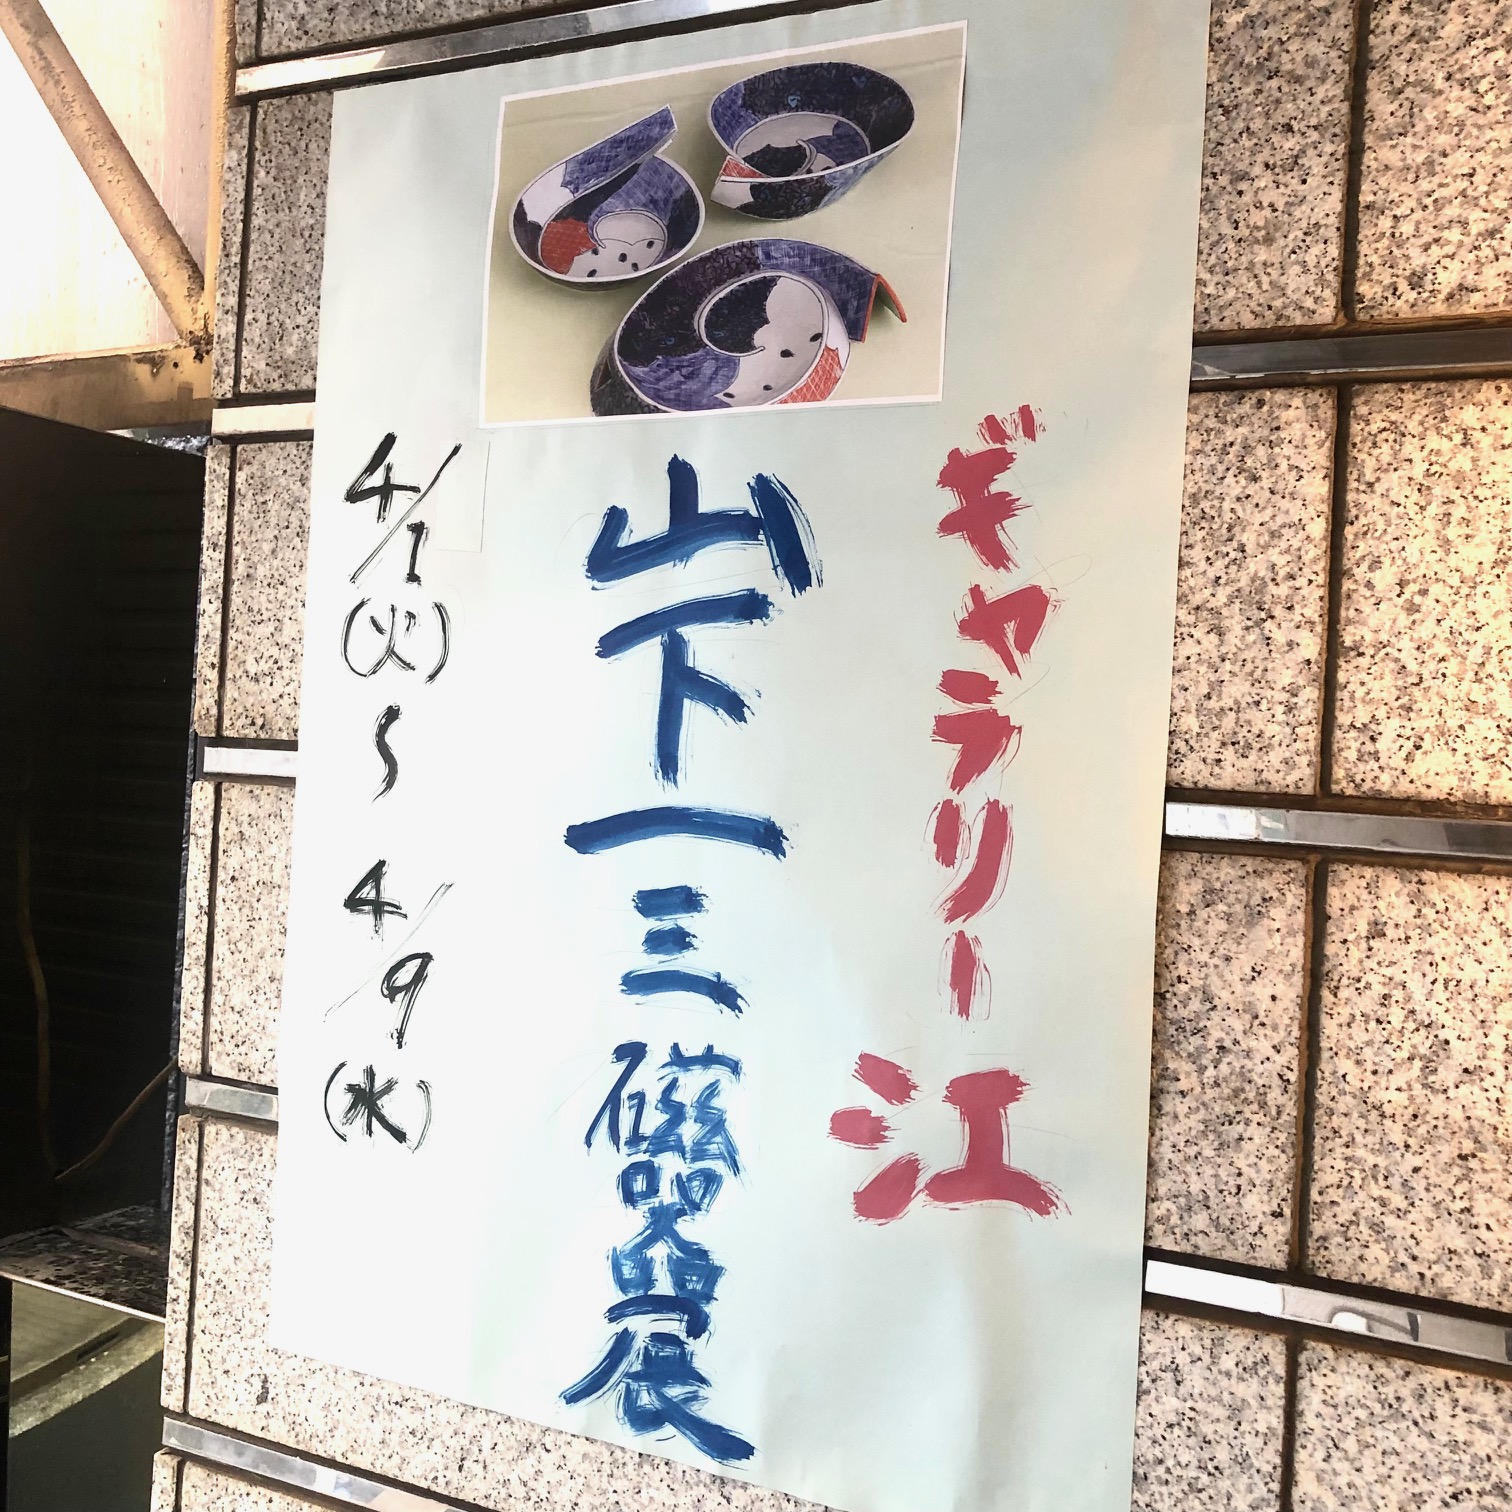 ギャラリー江
山下一三磁器展
4/1(火)〜4/9(水)